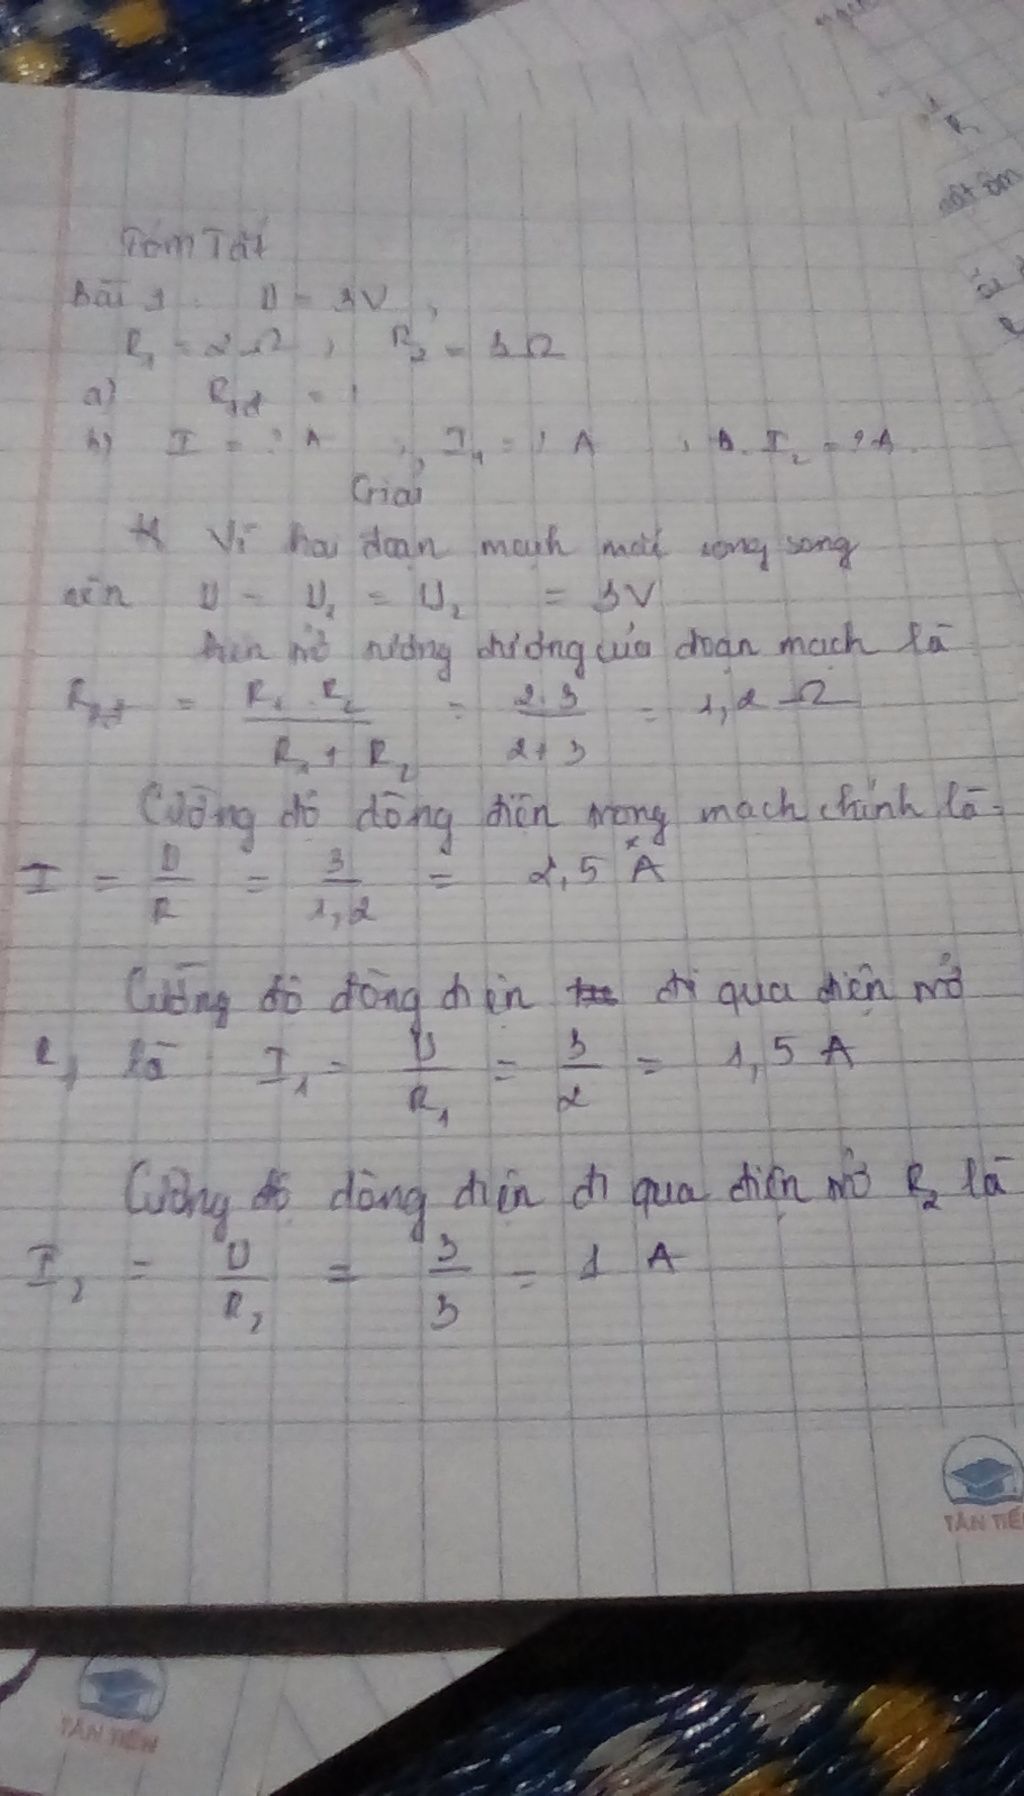 Tóm Tắt
Bài 1: U = 3V,
R₁ = 2Ω, R₂ = 3Ω
a) Rtđ = ?
b) I = ? A, I₁ = ? A, I₂ = ? A.
Giải
Vì hai đoạn mạch mắc song song
nên U = U₁ = U₂ = 3V
Điện trở tương đương của đoạn mạch là
Rtđ = R₁.R₂ / R₁ + R₂ = 2.3 / 2+3 = 1,2 Ω
Cường độ dòng điện trong mạch chính là:
I = U / R = 3 / 1,2 = 2,5 A
Cường độ dòng điện đi qua điện trở
R₁ là I₁ = U / R₁ = 3 / 2 = 1,5 A
Cường độ dòng điện đi qua điện trở R₂ là
I₂ = U / R₂ = 3 / 3 = 1 A
TÂN TIẾ
TÂN TIẾN